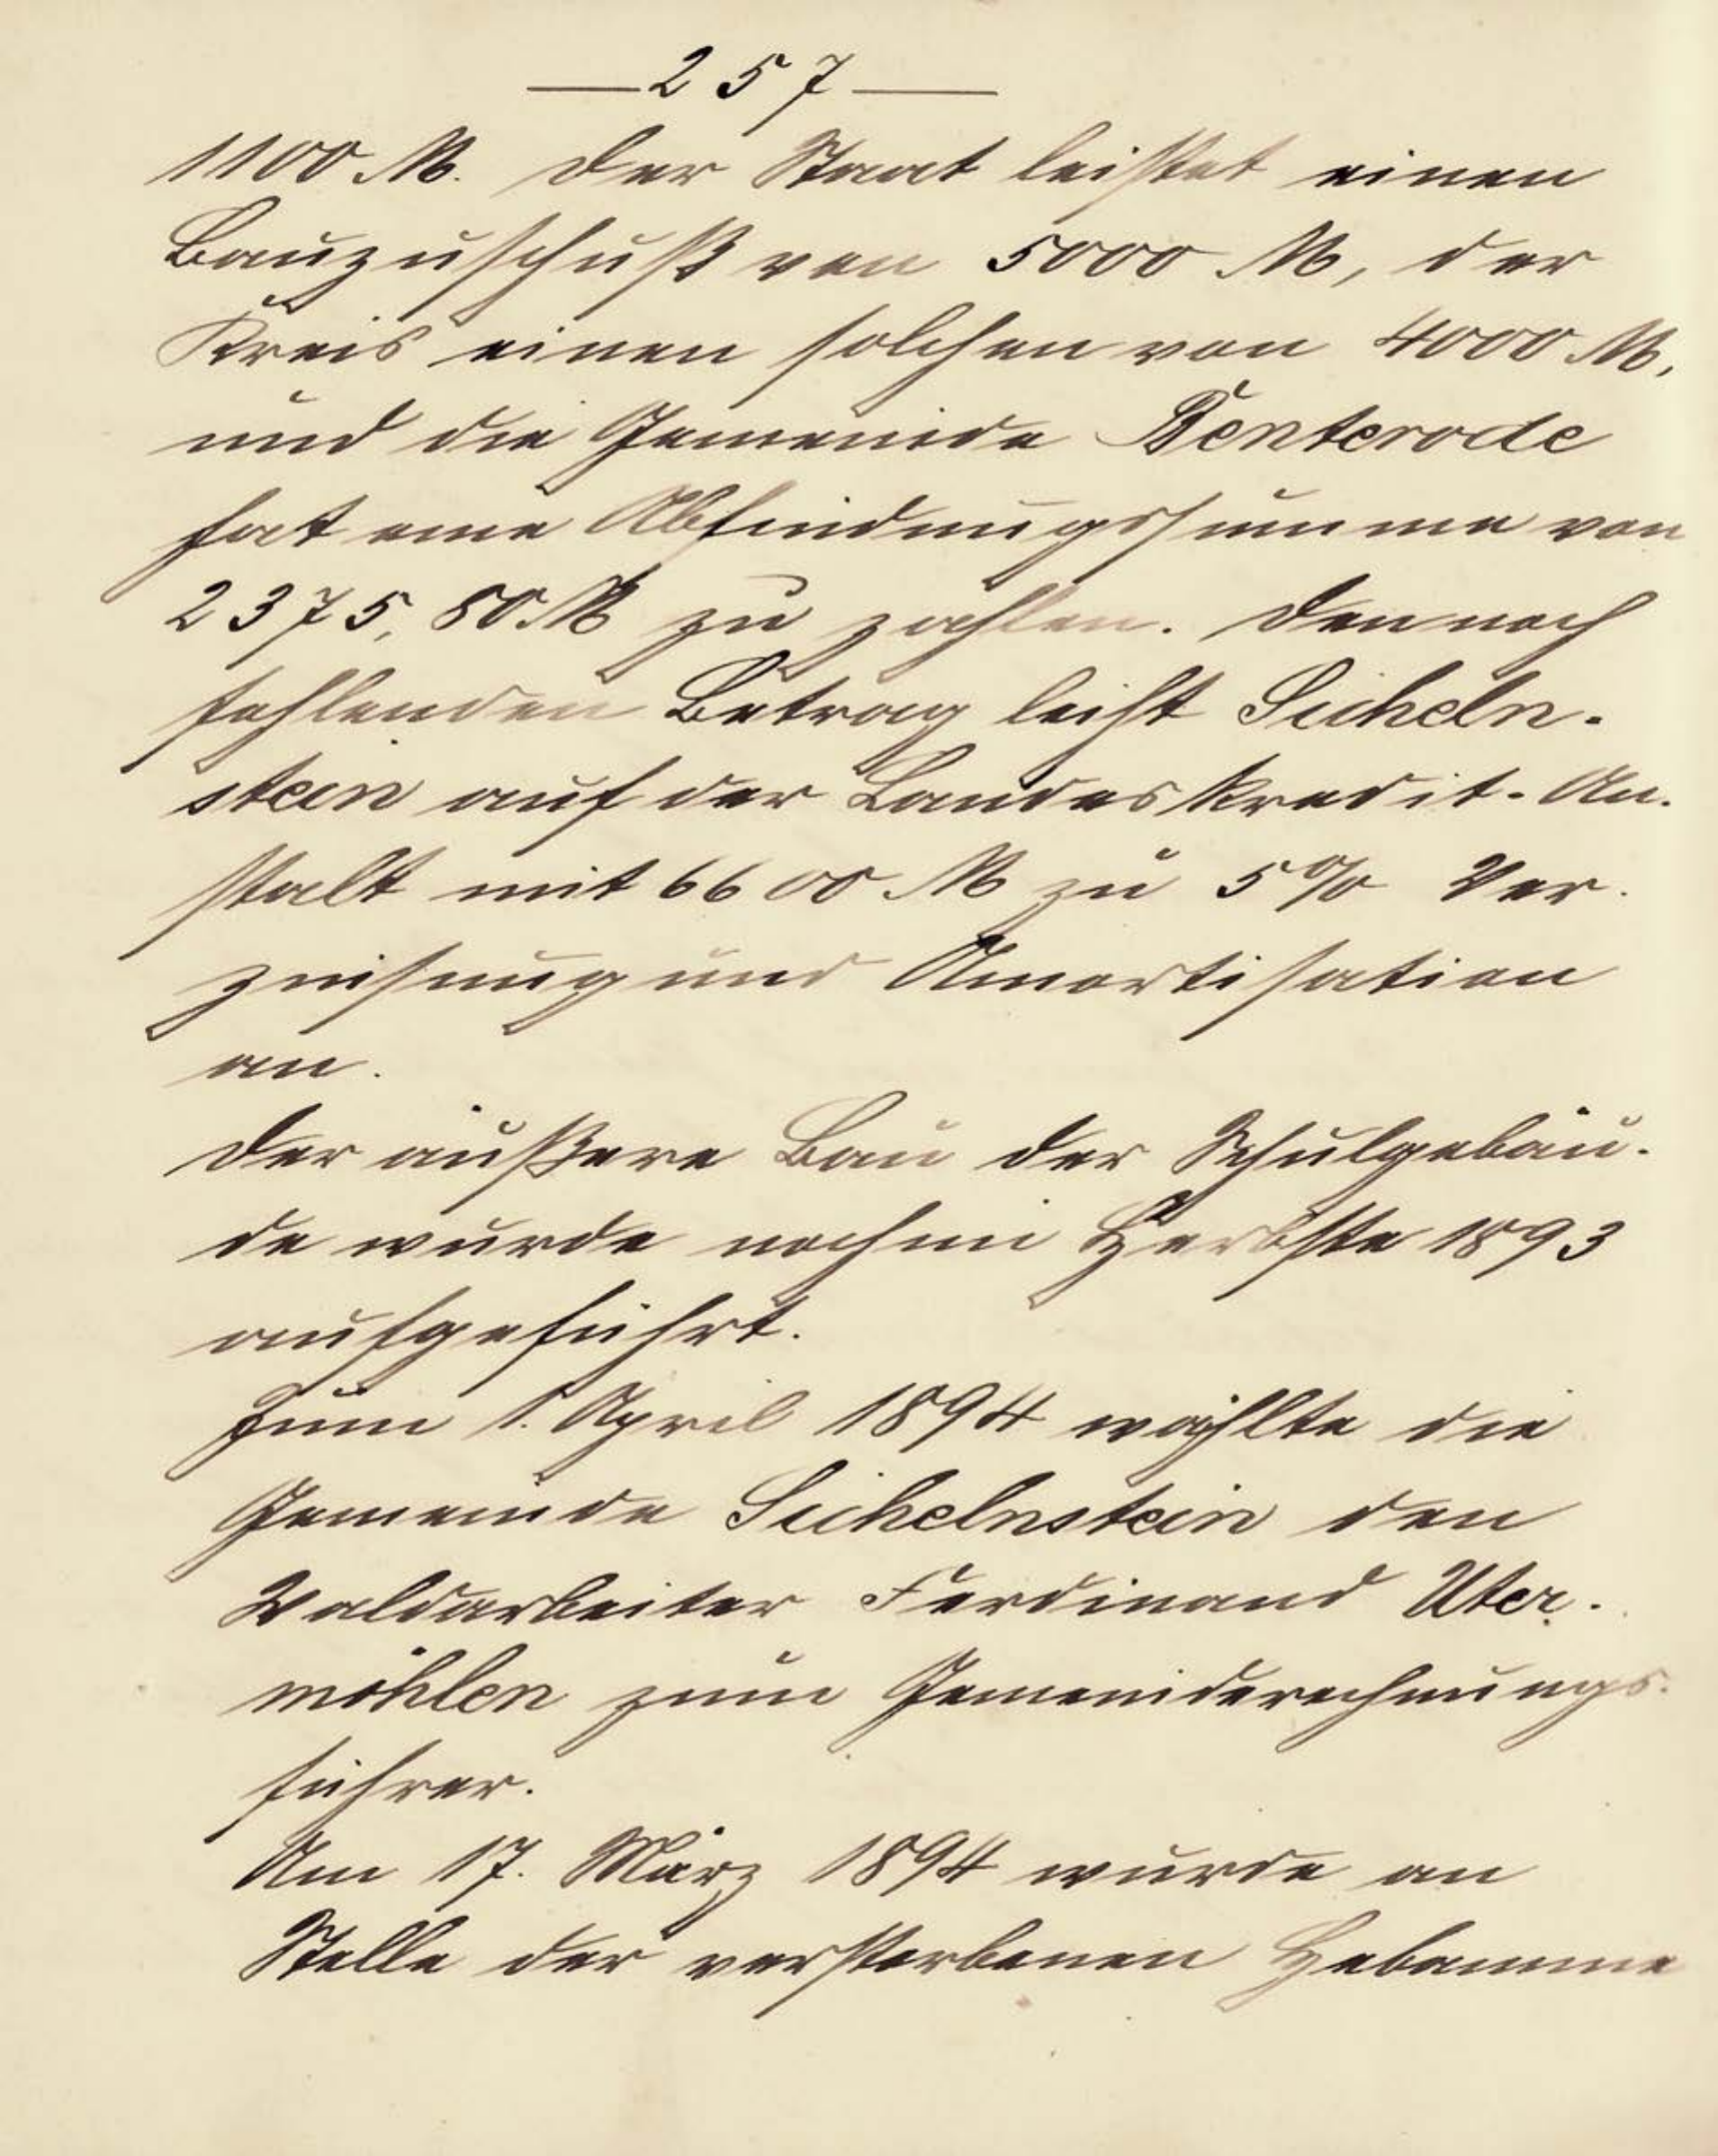 — 257 —
1100 M. Der Staat leistet einen
Bauzuschuß von 5000 M, der
Kreis einen solchen von 4000 M,
und die Gemeinde Benterode
hat eine Abfindungssumme von
2375,80 M zu zahlen. Den noch
fehlenden Betrag leiht Sicheln-
stein auf der Landeskredit-An-
stalt mit 6600 M zu 5% Ver-
zinsung und Amortisation
an.
Der äußere Bau der Schulgebäu-
de wurde noch im Herbste 1893
aufgeführt.
Zum 1. April 1894 wählte die
Gemeinde Sichelnstein den
Waldarbeiter Ferdinand Uter-
möhlen zum Gemeinderechnungs-
führer.
Am 17. März 1894 wurde an
Stelle der verstorbenen Hebamme